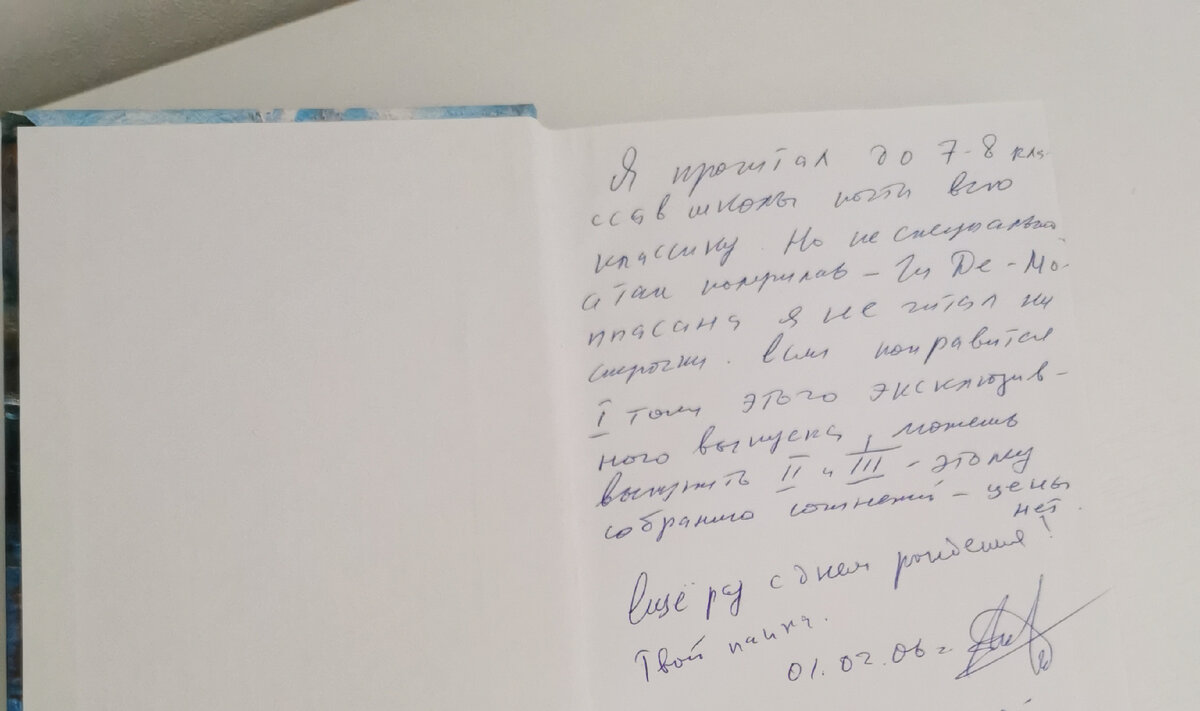 Я прочитал до 7-8 кла-
ссов школы почти всю
классику. Но не специально
а так получилось – Ги Де-Мо-
ппасана я не читал ни
строчки. Если понравится
I том этого эксклюзив-
ного выпуска, можешь
выкупить II и III – этому
собранию сочинений – цены
нет.
Ещё раз с днем рождения!
Твой папка.
01.02.06 г.